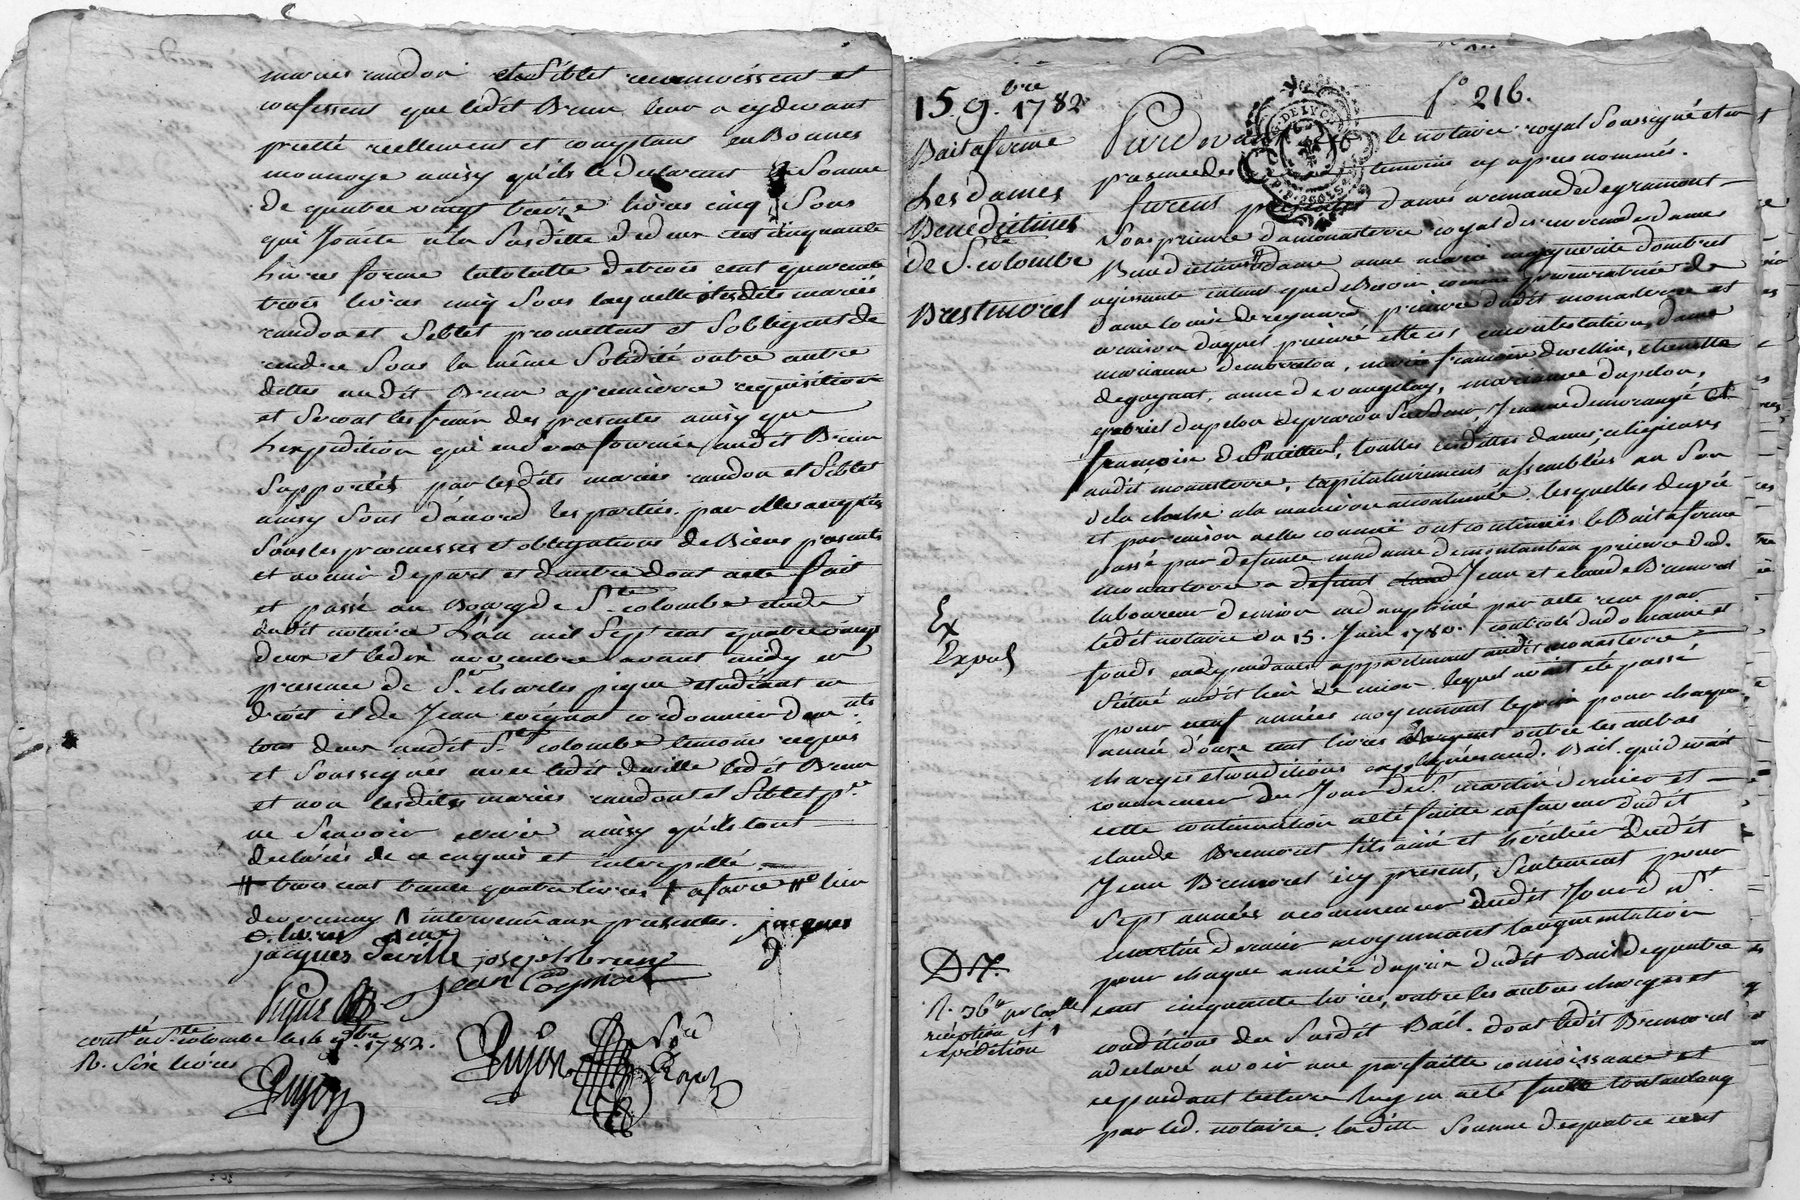 mariés randon et Siblet reconnoissent et
confessent que ledit Brun leur a cydevant
pretté reellement et comptant en Bonnes
monnoye ainsy qu'ils le declarent la Somme
de quatre vingt treize livres cinq Sous
qui Jointe à la Susditte de deux cent cinquante
Livres forme la totalle de trois cent quarante
trois livres cinq Sous laquelle lesdits mariés
randon et Siblet promettent et S'obligent de
rendre Sous la même Solidité outre autre
dettes audit Brun a premiere requisition
et Seront les frais des presentes ainsy que
L'expedition qui en Sera fournie audit Brun
Supportés par lesdits mariés randon et Siblet
ainsy Sont d'acord les parties par elles acceptés
Sous les promesses et obligations de Biens presents
et avenir de part et d'autre dont acte fait
et passé au Bourg de Ste colombe etude
dudit notaire L'an mil Sept cent quatre vingt
deux et le dix novembre avant midy en
presence de Sr charles pigue etudiant en
droit et de Jean coignat cordonnier demts
tous deux audit Ste colombe temoins requis
et Soussignés avec ledit deville ledit Brun
et non lesdits mariés randon et Siblet pr
ne Scavoir ecrire ainsy qu'ils l'ont
declarés de ce enquis et interpellé
trois cent trente quatre livres
intervenu aux presentes. jacques
jacques Deville joseph brun
Jean Coignat
contlé à Ste colombe le 9bre 1782.
R. Six livres
Pujon
Pujon
15 9bre 1782
Bail a ferme
Les dames
Benedictines
de Ste colombe
a
Bresmoret
Ex
Exped
f° 216.
Pardevant le notaire royal Soussigné et en
presence des temoins cy apres nommés.
furent presentes dames armande de gramont
Sousprieure du monastere royal des reverendes dames
Benedictines, dame anne marie
agissante
dame louise de reynard prieure dudit monastere et
a raison duquel prieuré elle est en contestation, dame
marianne demontdon, marie francoise
de guyant, anne de vaugelay, marianne dupelou,
gabriel dupelou Jeanne demorangié et
francoise de touttes lesdittes dames religieuses
audit monastere, capitulairement assemblées au Son
de la cloche a la maniere accoutumée. lesquelles de gré
et par raison a elle connue ont continuées le Bail a ferme
passé par defunte madame demontauban prieure dud.
monastere a defunt Jean et claude Bremoret
laboureur de mion en dauphiné par acte reçu par
ledit notaire du 15. Juin 1780. controlé du domaine et
fonds en dependances appartenant audit monastere
Situé audit lieu de mion lequel avoit été passé
pour neuf années moyennant le prix pour chaque
année d'onze cent livres d'argent outre les autres
charges et conditions expliquées aud. Bail. qui devoit
commencer du Jour de St. martin dernier et
cette continuation a été faitte en faveur dudit
claude Bremoret fils ainé et heritier dudit
Jean Bremoret icy present, Seulement pour
Sept années a commencer dudit Jour de St.
martin dernier moyennant l'augmentation
pour chaque année du prix dudit Bail de quatre
cent cinquante livres, outre les autres charges et
conditions du Susdit Bail. dont ledit Bremoret
a declaré avoir une parfaitte connoissance et
cependant lecture luy en a été faitte tout au long
par led. notaire. la ditte Somme de quatre cent
R. 36#
réception et
expédition